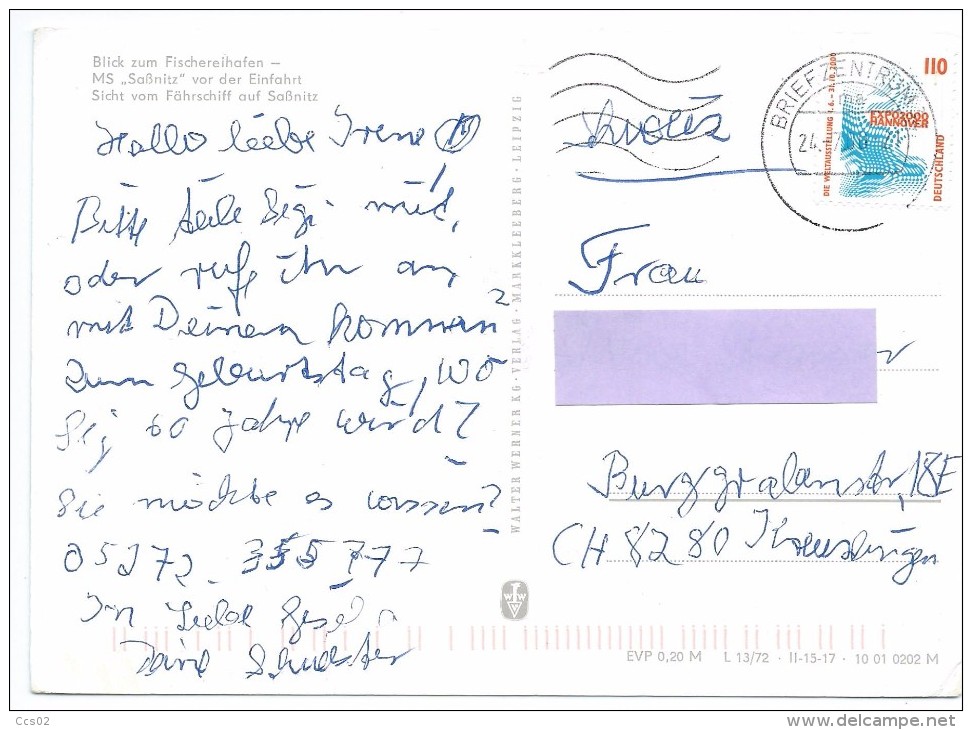 Blick zum Fischereihafen –
MS „Saßnitz" vor der Einfahrt
Sicht vom Fährschiff auf Saßnitz
Hallo liebe Irene
Bitte teile Sigi mit,
oder ruf ihn an,
mit Deinem kommen
zum Geburtstag, wo
Sigi 60 Jahre wird?
Sie möchte es wissen?
05272 - 355777
In Liebe Gisela
Deine Schwester
WALTER WERNER KG · VERLAG · MARKKLEEBERG - LEIPZIG
BRIEFZENTRUM
24.
110
EXPO2000
HANNOVER
DIE WELTAUSSTELLUNG 1.6.–31.10.2000
DEUTSCHLAND
Frau
Burggrafenstr, 18E
CH 8280 Kreuzlingen
EVP 0,20 M L 13/72 · II-15-17 · 10 01 0202 M
Ccs02
delcampe.net